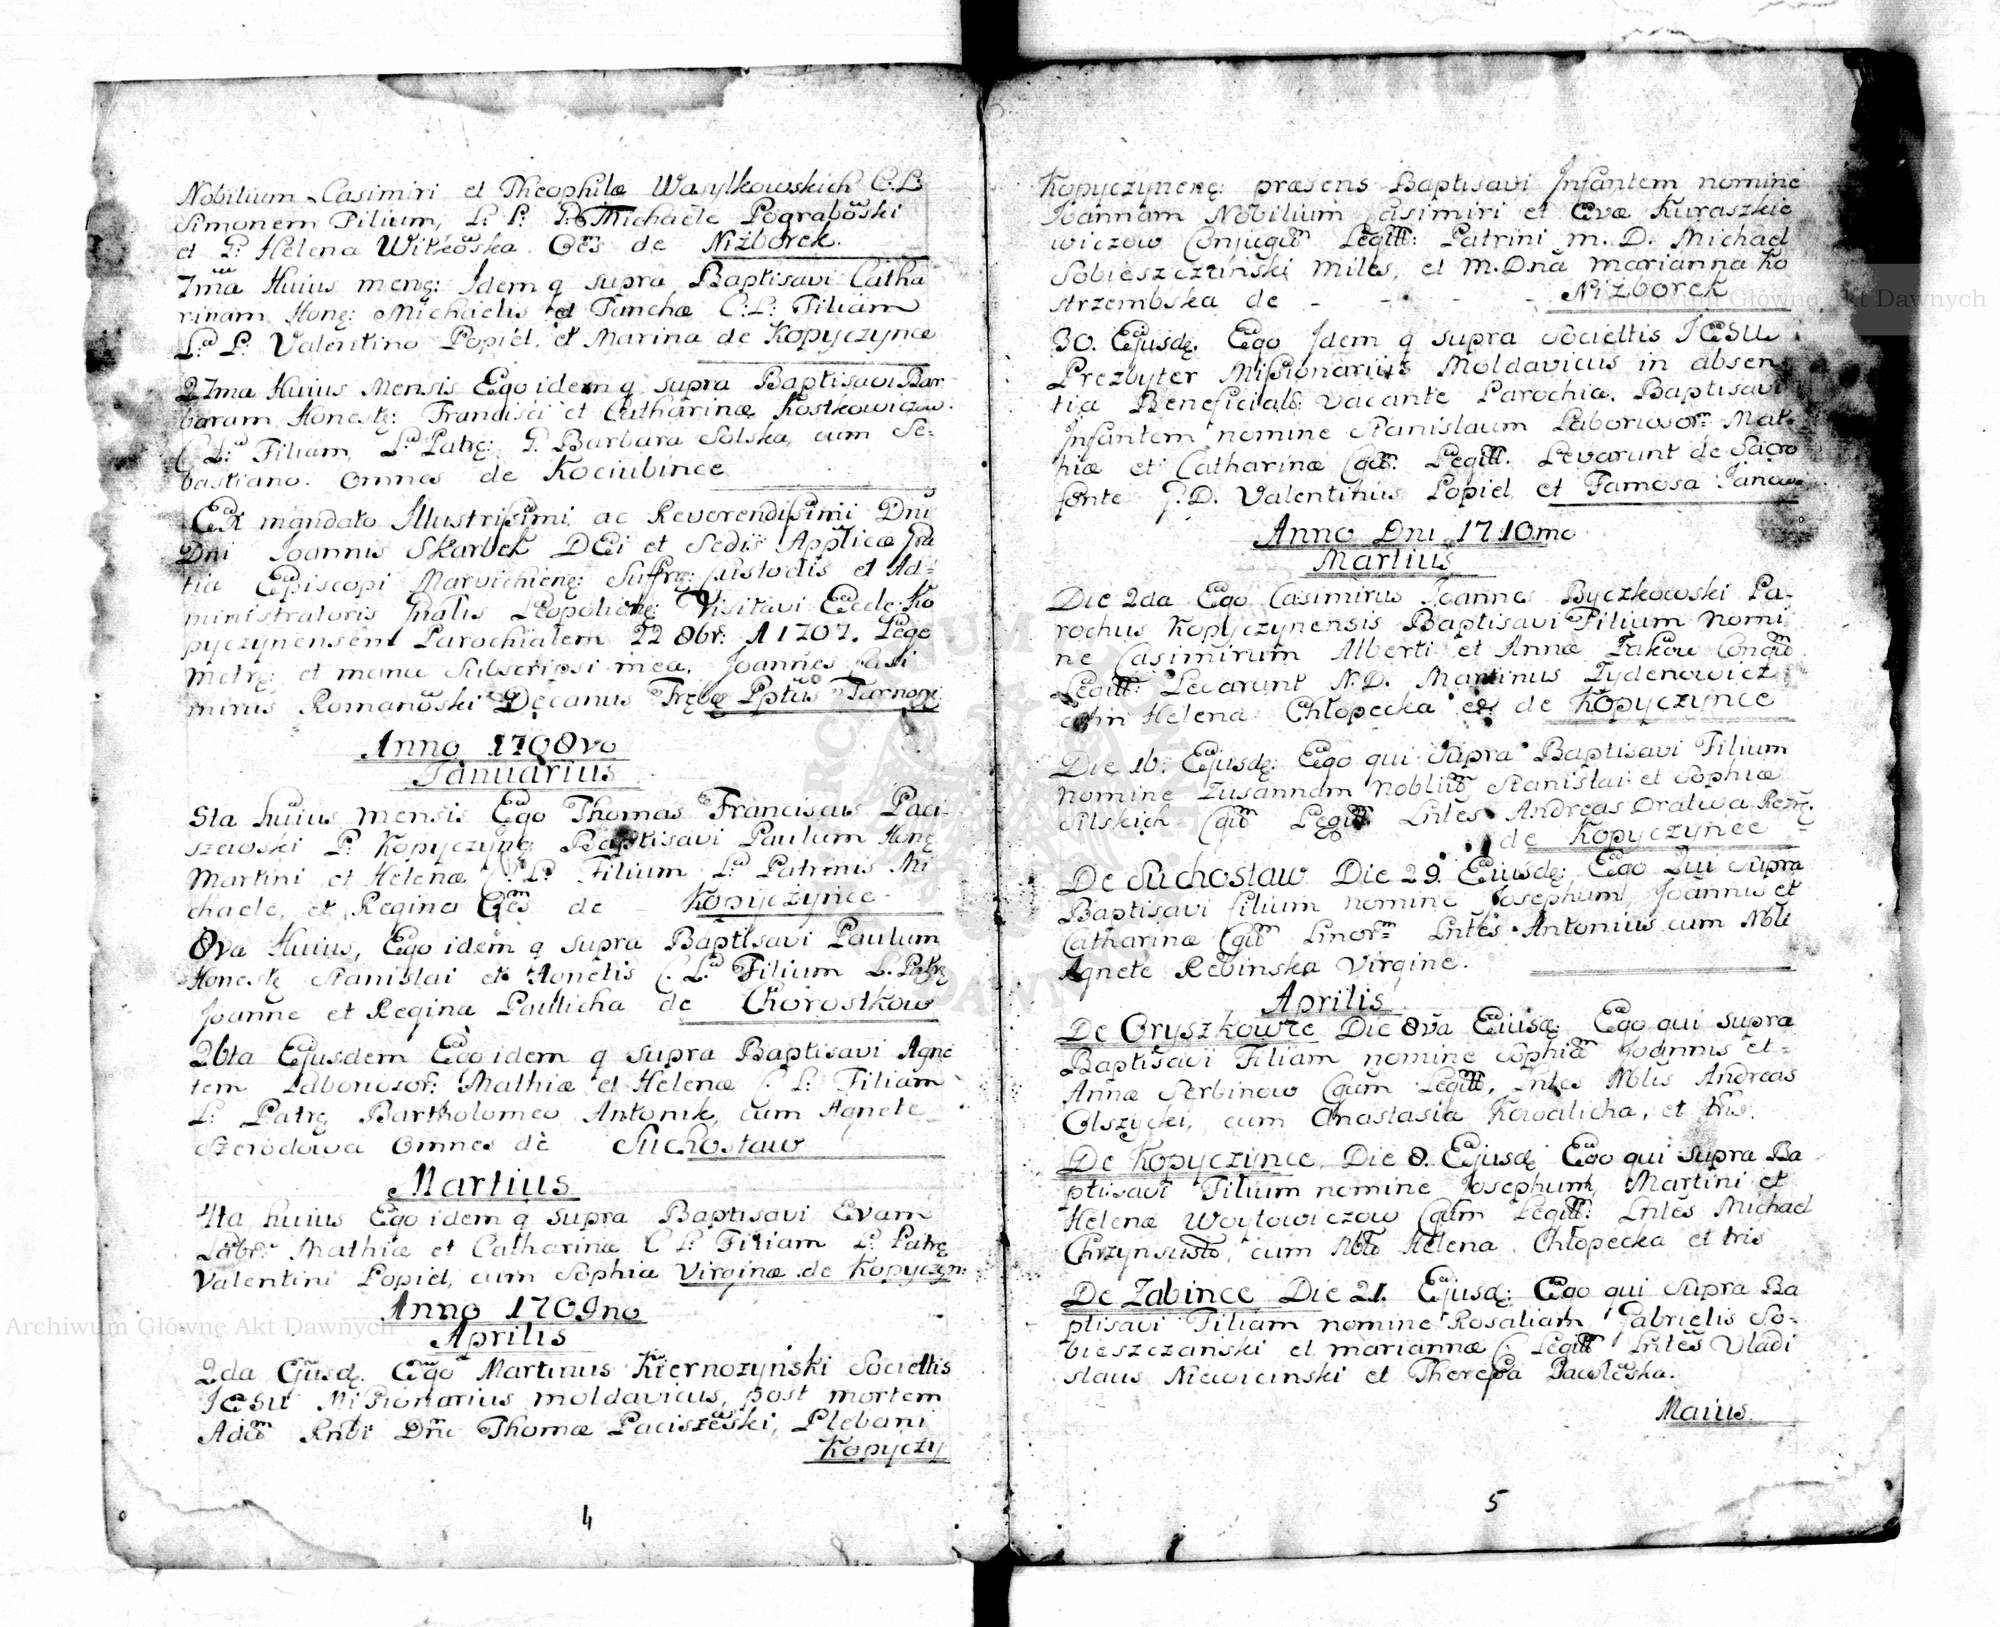 Nobilium Casimiri et Theophilæ Wasylkowskich C: L:
Simonem Filium, L: P: P: Michaele Pograbo͠ski
et P: Helena Witko͠ska Oēs de Nizborek.
7ma Huius mens: Idem q supra Baptisavi Catha
rinam Hone: Michaelis et Panchæ C: L: Filiam
L: P: Valentino Popiel, et Marina de Kopyczynce
27ma Huius Mensis Ego idem q supra Baptisavi Bar
baram Honest: Francisci et Catharinæ Kostkowiczow
C L: Filiam, L: Patrę: P. Barbara Solska, cum Se-
bastiano. omnes de Kociubince
Ex mandato Illustrissimi ac Reverendissimi Dni
Dni Joannis Skarbek DEi et Sedis Applicæ Gra
tia Episcopi Marvichienę: Suffrę: Custodis et Ad-
ministratoris Gnalis Leopolienę: Visitavi Eccle: Ko
pyczynensem Parochialem 22 8br: A 1707.
metrę: et manu subscripsi mea. Joannes Casi
mirus Romano͠ski Decanus Tręb: Pptus Tarnog:
Anno 1708vo
Januarius
5ta huius mensis Ego Thomas Franciscus Paci-
szewski P. Kopyczynę: Baptisavi Paulum Honę
Martini et Helenæ C: L: Filium L: Patrinis Mi
chaele, et Regina Oēs de Kopyczynce
8va Huius, Ego idem q supra Baptisavi Paulum
Honestę Stanislai et Agnetis C L: Filium L: Patrę
Joanne et Regina Paullicha de Chorostkow
26ta Ejusdem Ego idem q supra Baptisavi Agne
tem Laboriosor: Mathiæ et Helenæ C: L: Filiam
L: Patrę Bartholomeo Antonik, cum Agnete
Szerodowa omnes de Suchostaw
Martius
4ta huius Ego idem q supra Baptisavi Evam
Labr: Mathiæ et Catharinæ C L: Filiam L: Patrę
Valentini Popiel, cum Sophia Virginæ de Kopyczyn:
Anno 1709no
Aprilis
2da Ejusdę. Ego Martinus Kiernozynski Societtis
JESU Missionarius moldavicus, post mortem
Adm Rndi Dni Thomæ Paciszeski, Plebani
Kopyczy
4
Kopyczynenę: præsens Baptisavi Infantem nomine
Joannam Nobilium Casimiri et Evæ Kuraszkie
wiczow Conjugum Legitt: Patrini M. D. Michael
Sobieszczanski Miles, et M. Dna Marianna Ko
strzembska de - - - - - Nizborek
30. Ejusdę. Ego Idem q supra Societtis JESU
Prezbyter Missionarius Moldavicus in absen
tia Beneficiali: vacante Parochia. Baptisavi
Infantem nomine Stanislaum Laboriosor: Mat-
hiæ et Catharinæ Cgum: Legitt. Levarunt de Sacro
fonte G. D. Valentinus Popiel, et Famosa Janowa
Anno Dni 1710mo
Martius
Die 2da Ego Casimirus Joannes Byczkowski Pa-
rochus Kopyczynensis Baptisavi Filium nomi
ne Casimirum Alberti et Annæ Takow Congum
Legitt: Levarunt N. D. Martinus Zydenowicz
cum Helena Chłopecka de Kopyczynce
Die 16. Ejusdę: Ego qui supra Baptisavi Filium
nomine Zusannam Nobliū Stanislai et Sophiæ
Silskich Cgum Legitt Lntes Andreas Dratwa
de Kopyczynce
De Suchostaw Die 29. Eiusdę: Ego Qui supra
Baptisavi filium nomine Josephum, Joannis et
Catharinæ Cgum Lntes Antonius cum Nbli
Agnete Rebinska Virgine.
Aprilis
De Oryszkowce Die 8va Eiusdę: Ego qui supra
Baptisavi Filiam nomine Sophiā Joannis et-
Annæ Serbinow Cgum Legitt, Lntes Nblis Andreas
Olszycki, cum Anastasia Kowalicha, et tris.
De Kopyczynce, Die 8. Ejusdę Ego qui supra Ba
ptisavi Filium nomine Josephum, Martini et
Helenæ Woytowiczow Cgum Legitt: Lntes Michael
cum Nbli Helena Chłopecka et tris
De Zabince Die 21. Ejusdę: Ego qui supra Ba
ptisavi Filiam nomine Rosaliam, Gabrielis So-
bieszczanski et mariannæ C: Legitt Lntes Vladi
slaus Niewicinski et Theresa Pawło͠ska.
Maius
5
Archiwum Główne Akt Dawnych
Archiwum Główne Akt Dawnych